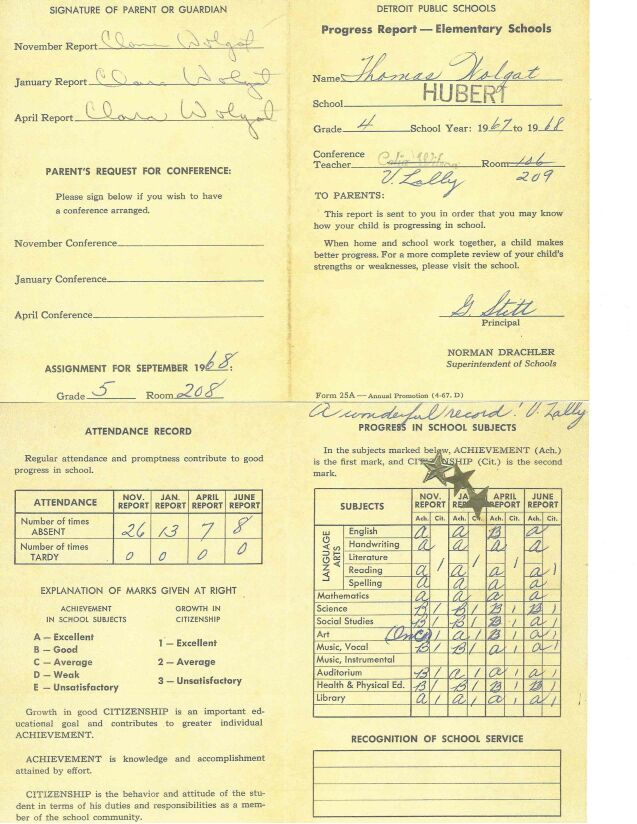 SIGNATURE OF PARENT OR GUARDIAN
November Report Clara Wolgat
January Report Clara Wolgat
April Report Clara Wolgat
PARENT'S REQUEST FOR CONFERENCE:
Please sign below if you wish to have
a conference arranged.
November Conference
January Conference
April Conference
ASSIGNMENT FOR SEPTEMBER 1968:
Grade 5 Room 208
DETROIT PUBLIC SCHOOLS
Progress Report — Elementary Schools
Name Thomas Wolgat
School HUBERT
Grade 4 School Year: 1967 to 1968
Conference
Teacher Celia Wilson Room 106
V. Lally 209
TO PARENTS:
This report is sent to you in order that you may know
how your child is progressing in school.
When home and school work together, a child makes
better progress. For a more complete review of your child's
strengths or weaknesses, please visit the school.
G. Stitt
Principal
NORMAN DRACHLER
Superintendent of Schools
Form 25A — Annual Promotion (4-67, D)
ATTENDANCE RECORD
Regular attendance and promptness contribute to good
progress in school.
ATTENDANCE NOV. REPORT JAN. REPORT APRIL REPORT JUNE REPORT
Number of times ABSENT 26 13 7 8
Number of times TARDY 0 0 0 0
EXPLANATION OF MARKS GIVEN AT RIGHT
ACHIEVEMENT IN SCHOOL SUBJECTS
A — Excellent
B — Good
C — Average
D — Weak
E — Unsatisfactory
GROWTH IN CITIZENSHIP
1 — Excellent
2 — Average
3 — Unsatisfactory
Growth in good CITIZENSHIP is an important ed-
ucational goal and contributes to greater individual
ACHIEVEMENT.
ACHIEVEMENT is knowledge and accomplishment
attained by effort.
CITIZENSHIP is the behavior and attitude of the stu-
dent in terms of his duties and responsibilities as a mem-
ber of the school community.
A wonderful record! V. Lally
PROGRESS IN SCHOOL SUBJECTS
In the subjects marked below, ACHIEVEMENT (Ach.)
is the first mark, and CITIZENSHIP (Cit.) is the second
mark.
SUBJECTS NOV. REPORT JAN. REPORT APRIL REPORT JUNE REPORT
Ach. Cit. Ach. Cit. Ach. Cit. Ach. Cit.
LANGUAGE ARTS
English a a B a
Handwriting a a a a
Literature 1 1 1
Reading a a a a 1
Spelling a a a a
Mathematics a a a a
Science B 1 B 1 B 1 B 1
Social Studies B 1 B 1 B 1 a 1
Art a 1 B 1 a 1
Music, Vocal B 1 B 1 a 1 a 1
Music, Instrumental
Auditorium B 1 a 1 a 1 a 1
Health & Physical Ed. B 1 B 1 B 1 B 1
Library a 1 a 1 a 1 a 1
RECOGNITION OF SCHOOL SERVICE